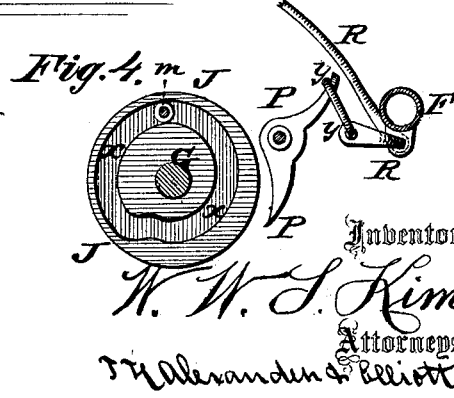 Fig. 4. m J
R
y
P
F
x G
y
R
x
P
J
Inventor
W. W. S. Kim
Attorneys
Alexander & Elliott